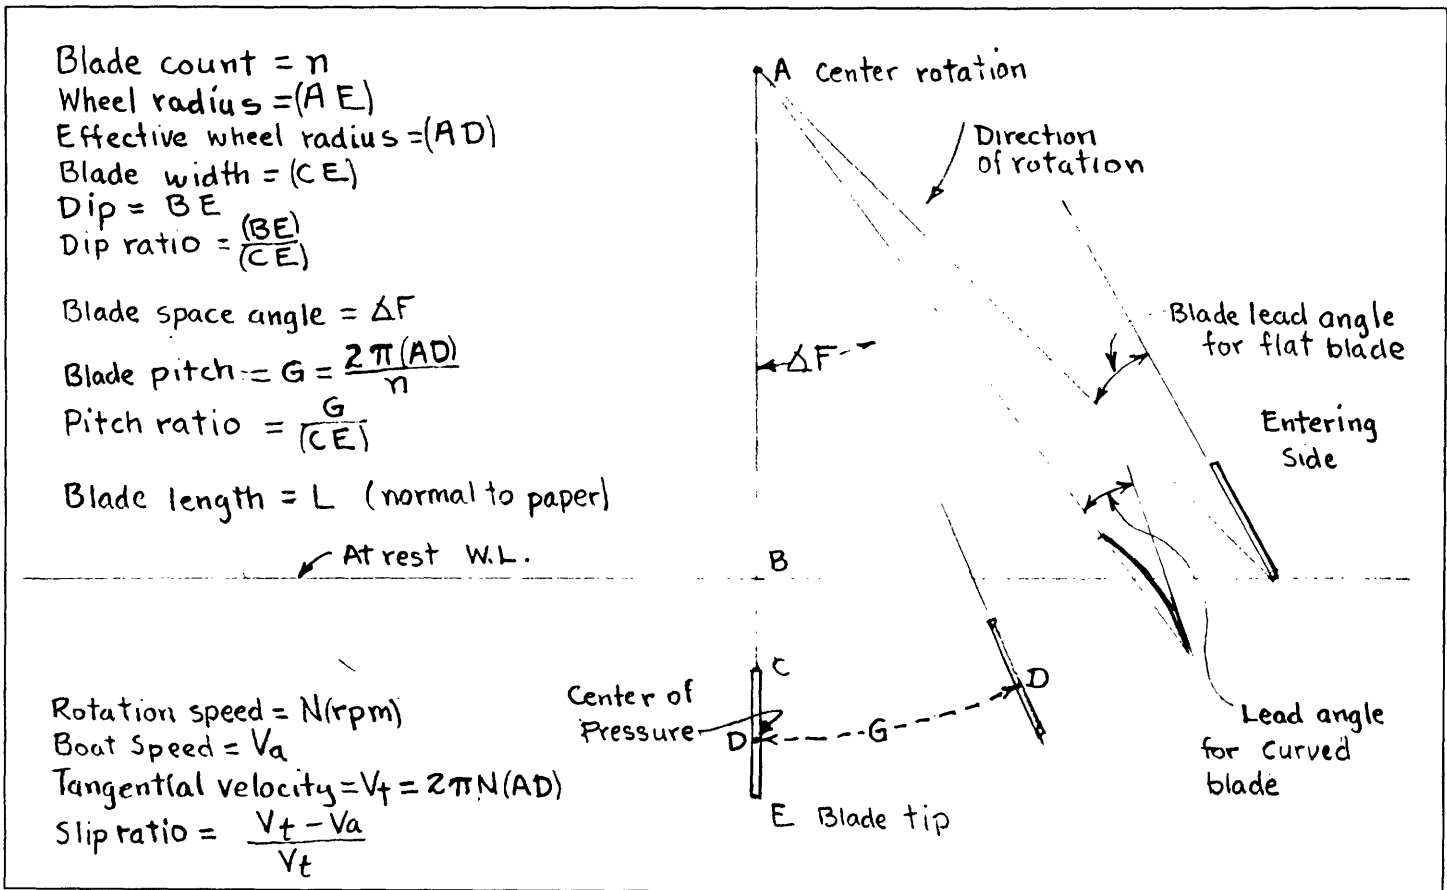 Blade count = n
Wheel radius =(A E)
Effective wheel radius =(AD)
Blade width = (CE)
Dip = BE
Dip ratio = (BE)/(CE)
Blade space angle = ∆F
Blade pitch = G = 2π(AD)/n
Pitch ratio = G/(CE)
Blade length = L (normal to paper)
At rest W.L.
Rotation speed = N(rpm)
Boat Speed = Va
Tangential velocity = Vt = 2πN(AD)
Slip ratio = Vt - Va/Vt
A Center rotation
Direction
of rotation
∆F
Blade lead angle
for flat blade
Entering
Side
B
C
Center of
Pressure
D
G
D
E Blade tip
Lead angle
for curved
blade